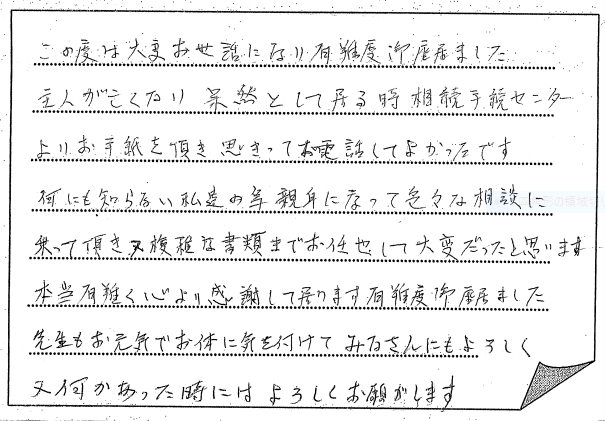 この度は大変お世話になり有難度御座居ました
主人が亡くなり呆然として居る時相続手続センター
よりお手紙を頂き思いきってお電話してよかったです
何にも知らない私達の事親身になって色々な相談に
乗って頂き又複雑な書類までお任せして大変だったと思います
本当有難く心より感謝して居ります有難度御座居ました
先生もお元気でお体に気を付けてみなさんにもよろしく
又何かあった時にはよろしくお願がいします